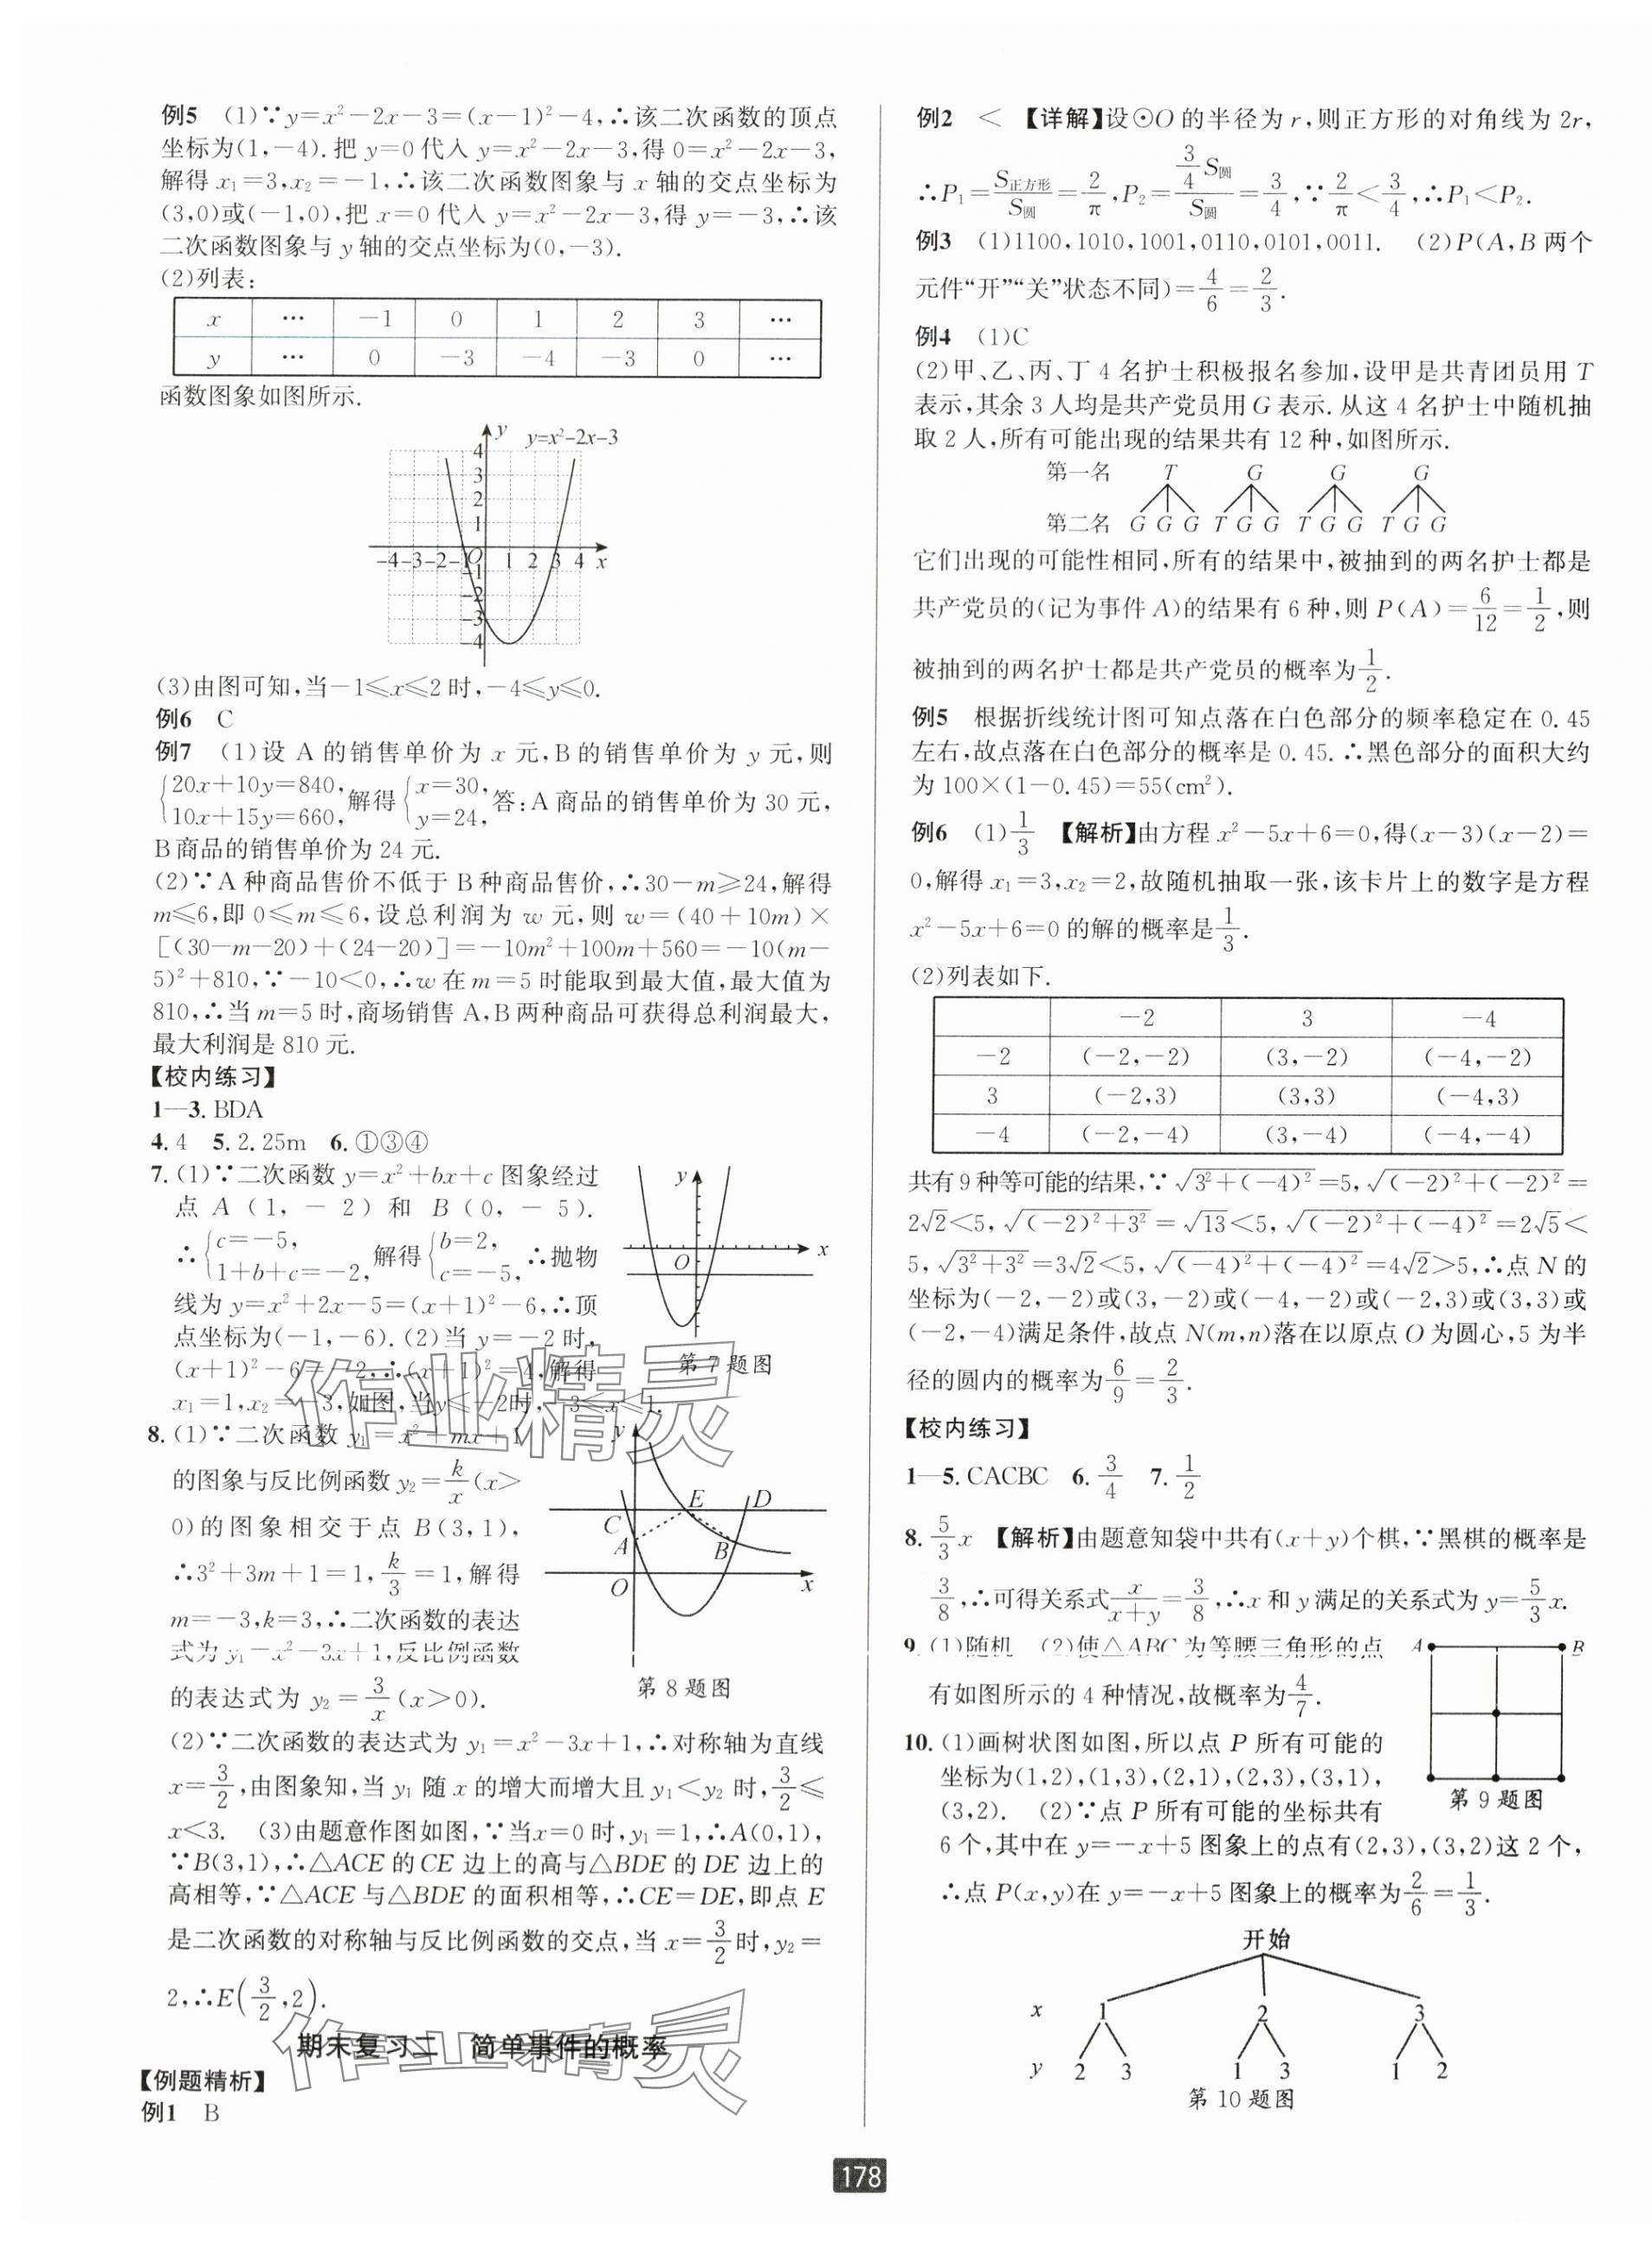 例5 (1)∵y=x²-2x-3=(x-1)²-4,∴该二次函数的顶点
坐标为(1,-4).把 y=0 代入 y=x²-2x-3,得 0=x²-2x-3,
解得 x₁=3,x₂=-1,∴该二次函数图象与 x 轴的交点坐标为
(3,0)或(-1,0),把 x=0 代入 y=x²-2x-3,得 y=-3,∴该
二次函数图象与 y 轴的交点坐标为(0,-3).
(2)列表:
x … -1 0 1 2 3 …
y … 0 -3 -4 -3 0 …
函数图象如图所示.
y y=x²-2x-3
4
3
2
1
-4 -3 -2 -1 O 1 2 3 4 x
-1
-2
-3
-4
(3)由图可知,当-1≤x≤2时,-4≤y≤0.
例6 C
例7 (1)设 A 的销售单价为 x 元,B 的销售单价为 y 元,则
{20x+10y=840, 10x+15y=660, 解得 {x=30, y=24, 答:A 商品的销售单价为 30 元,
B 商品的销售单价为 24 元.
(2)∵A 种商品售价不低于 B 种商品售价,∴30-m≥24,解得
m≤6,即 0≤m≤6,设总利润为 w 元,则 w=(40+10m)×
[(30-m-20)+(24-20)]=-10m²+100m+560=-10(m-
5)²+810,∵-10<0,∴w 在 m=5 时能取到最大值,最大值为
810,∴当 m=5 时,商场销售 A,B 两种商品可获得总利润最大,
最大利润是 810 元.
【校内练习】
1—3. BDA
4. 4 5. 2.25m 6. ①③④
7. (1)∵二次函数 y=x²+bx+c 图象经过
点 A(1,-2)和 B(0,-5).
∴{c=-5, 1+b+c=-2, 解得{b=2, c=-5, ∴抛物
线为 y=x²+2x-5=(x+1)²-6,∴顶
点坐标为(-1,-6).(2)当 y=-2 时,
(x+1)²-6=-2,∴(x+1)²=4,解得
x₁=1,x₂=-3,如图,当y≤-2时,-3≤x≤1.
y
O x
第 7 题图
8. (1)∵二次函数 y₁=x²+mx+1
的图象与反比例函数 y₂=k/x(x>
0)的图象相交于点 B(3,1),
∴3²+3m+1=1,k/3=1,解得
m=-3,k=3,∴二次函数的表达
式为 y₁=x²-3x+1,反比例函数
的表达式为 y₂=3/x(x>0).
y
E D
C
A B
O x
第 8 题图
(2)∵二次函数的表达式为 y₁=x²-3x+1,∴对称轴为直线
x=3/2,由图象知,当 y₁ 随 x 的增大而增大且 y₁<y₂ 时,3/2≤
x<3. (3)由题意作图如图,∵当x=0时,y₁=1,∴A(0,1),
∵B(3,1),∴△ACE 的 CE 边上的高与△BDE 的 DE 边上的
高相等,∵△ACE 与△BDE 的面积相等,∴CE=DE,即点 E
是二次函数的对称轴与反比例函数的交点,当 x=3/2时,y₂=
2,∴E(3/2,2).
期末复习二 简单事件的概率
【例题精析】
例1 B
例2 < 【详解】设⊙O 的半径为 r,则正方形的对角线为 2r,
∴P₁=S正方形/S圆=2/π,P₂=(3/4 S圆)/S圆=3/4,∵2/π<3/4,∴P₁<P₂.
例3 (1)1100,1010,1001,0110,0101,0011. (2)P(A,B 两个
元件“开”“关”状态不同)=4/6=2/3.
例4 (1)C
(2)甲、乙、丙、丁 4 名护士积极报名参加,设甲是共青团员用 T
表示,其余 3 人均是共产党员用 G 表示.从这 4 名护士中随机抽
取 2 人,所有可能出现的结果共有 12 种,如图所示.
第一名 T G G G
第二名 G G G T G G T G G T G G
它们出现的可能性相同,所有的结果中,被抽到的两名护士都是
共产党员的(记为事件 A)的结果有 6 种,则 P(A)=6/12=1/2,则
被抽到的两名护士都是共产党员的概率为1/2.
例5 根据折线统计图可知点落在白色部分的频率稳定在 0.45
左右,故点落在白色部分的概率是 0.45.∴黑色部分的面积大约
为 100×(1-0.45)=55(cm²).
例6 (1)1/3 【解析】由方程 x²-5x+6=0,得(x-3)(x-2)=
0,解得 x₁=3,x₂=2,故随机抽取一张,该卡片上的数字是方程
x²-5x+6=0 的解的概率是1/3.
(2)列表如下.
-2 3 -4
-2 (-2,-2) (3,-2) (-4,-2)
3 (-2,3) (3,3) (-4,3)
-4 (-2,-4) (3,-4) (-4,-4)
共有 9 种等可能的结果,∵√(3²+(-4)²)=5,√((-2)²+(-2)²)=
2√2<5,√((-2)²+3²)=√13<5,√((-2)²+(-4)²)=2√5<
5,√(3²+3²)=3√2<5,√((-4)²+(-4)²)=4√2>5,∴点 N 的
坐标为(-2,-2)或(3,-2)或(-4,-2)或(-2,3)或(3,3)或
(-2,-4)满足条件,故点 N(m,n)落在以原点 O 为圆心,5 为半
径的圆内的概率为6/9=2/3.
【校内练习】
1—5. CACBC 6. 3/4 7. 1/2
8. 5/3 x 【解析】由题意知袋中共有(x+y)个棋,∵黑棋的概率是
3/8,∴可得关系式x/(x+y)=3/8,∴x 和 y 满足的关系式为 y=5/3 x.
9. (1)随机 (2)使△ABC 为等腰三角形的点
有如图所示的 4 种情况,故概率为4/7.
A B
第 9 题图
10. (1)画树状图如图,所以点 P 所有可能的
坐标为(1,2),(1,3),(2,1),(2,3),(3,1),
(3,2). (2)∵点 P 所有可能的坐标共有
6 个,其中在 y=-x+5 图象上的点有(2,3),(3,2)这 2 个,
∴点 P(x,y)在 y=-x+5 图象上的概率为2/6=1/3.
开始
x 1 2 3
y 2 3 1 3 1 2
第 10 题图
178
作业精灵
作业精灵